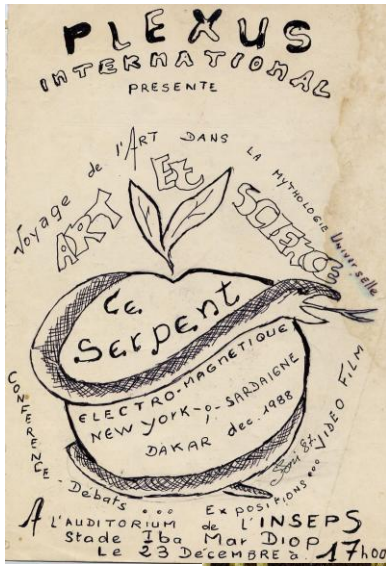 PLEXUS
INTERNATIONAL
PRESENTE
Voyage de l'ART DANS LA MYTHOLOGIE Universelle
ART Et SCIENCE
Le
Serpent
ELECTRO-MAGNETIQUE
NEW YORK - SARDAIGNE
DAKAR dec. 1988
CONFERENCE - Débats ... Expositions ... VIDEO FILM
A L'AUDITORIUM de L'INSEPS
Stade Iba Mar Diop
Le 23 Décembre à 17h00